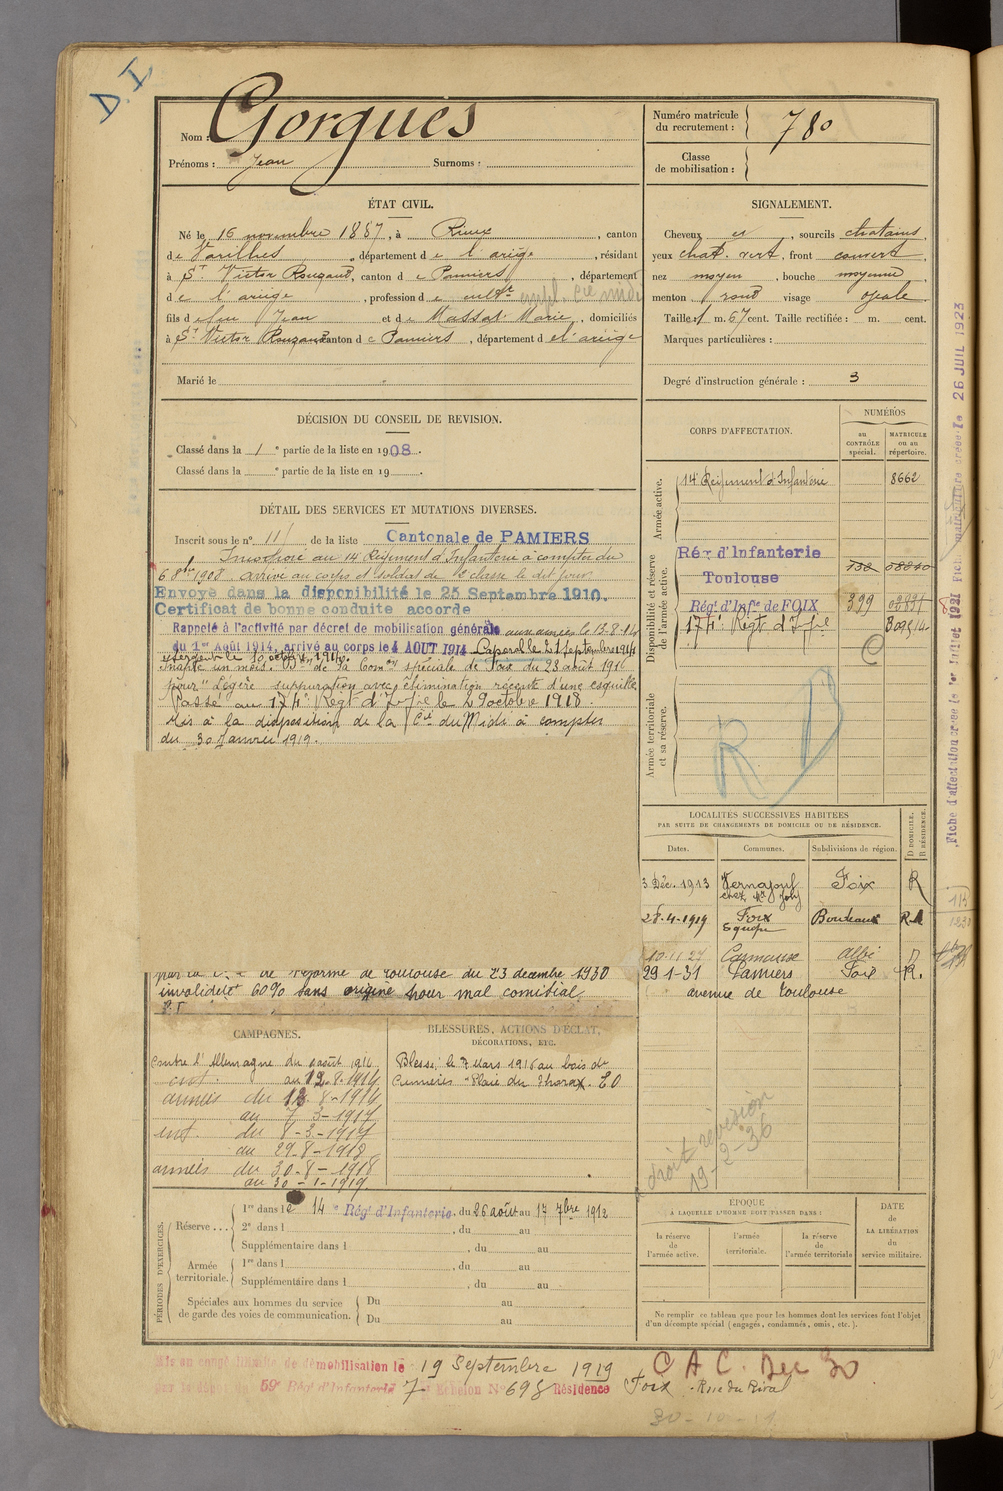 D.I
Nom : Gorgues
Prénoms : Jean Surnoms :
Numéro matricule
du recrutement : 780
Classe
de mobilisation :
ÉTAT CIVIL.
Né le 16 novembre 1887, à Rieux, canton
de Varilhes, département de l'ariège, résidant
à St Victor Rouzaud, canton de Pamiers, département
de l'ariège, profession de cultr empl. Cie midi
fils de feu Jean et de Massat Marie, domiciliés
à St Victor Rouzaud canton de Pamiers, département de l'ariège
Marié le
SIGNALEMENT.
Cheveux et, sourcils chatains,
yeux chat. vert, front couvert
nez moyen, bouche moyenne
menton rond visage ovale
Taille 1 m. 67 cent. Taille rectifiée : m. cent.
Marques particulières :
Degré d'instruction générale : 3
DÉCISION DU CONSEIL DE REVISION.
Classé dans la 1e partie de la liste en 1908.
Classé dans la e partie de la liste en 19 .
DÉTAIL DES SERVICES ET MUTATIONS DIVERSES.
Inscrit sous le n° 11 de la liste Cantonale de PAMIERS
Incorporé au 14e Régiment d'Infanterie à compter du
6 8bre 1908. arrivé au corps et soldat de 2e classe le dit jour
Envoyé dans la disponibilité le 25 Septembre 1910.
Certificat de bonne conduite accordé
Rappelé à l'activité par décret de mobilisation générale aux armées le 13-8-14
du 1er Août 1914, arrivé au corps le 4 AOUT 1914 Caporal le 21 septembre 1914
sergent le 10 octobre 1914.
inapte un mois. Don de la Comon spéciale de Foix du 23 août 1916
pour "Légère suppuration avec élimination récente d'une esquille
Passé au 174e Régt d'Infie le 29 octobre 1918.
Mis à la disposition de la Cie du Midi à compter
du 30 Janvier 1919.
par la de réforme de Toulouse du 23 decembre 1930
invalidité 60% sans origine pour mal comitial
CORPS D'AFFECTATION.
NUMÉROS
au CONTRÔLE spécial.
MATRICULE ou au répertoire.
Armée active.
14e Régiment d'Infanterie 8662
Disponibilité et réserve de l'armée active.
Rég. d'Infanterie
Toulouse
Régt d'Infie de FOIX 399
174e Régt d'Infie
C
Armée territoriale et sa réserve.
R D
LOCALITÉS SUCCESSIVES HABITÉES
PAR SUITE DE CHANGEMENTS DE DOMICILE OU DE RÉSIDENCE.
Dates. Communes. Subdivisions de région. D DOMICILE. R RÉSIDENCE.
3 Déc. 1913 Vernajoul Foix R
chez Mr
28-4-1919 Foix Bordeaux R.
10-11-27 Carmaux Albi D
29-1-31 Pamiers Foix R.
avenue de Toulouse
CAMPAGNES.
Contre l'Allemagne du 4 août 1914
int. au 12-8-1914
armées du 13-8-1914
au 7-3-1917
int. du 8-3-1917
au 29-8-1918
armées du 30-8-1918
au 30-1-1919.
BLESSURES, ACTIONS D'ÉCLAT,
DÉCORATIONS, ETC.
Blessé le 7 Mars 1916 au bois de
Cumières "Plaie du Thorax. EO
droit révision
19-2-36
PÉRIODES D'EXERCICES.
Réserve ...
1re dans le 14e Rég. d'Infanterie, du 26 août au 17 7bre 1912
2e dans l , du au
Supplémentaire dans l , du au
Armée territoriale.
1re dans l , du au
Supplémentaire dans l , du au
Spéciales aux hommes du service
de garde des voies de communication.
Du au
Du au
ÉPOQUE
À LAQUELLE L'HOMME DOIT PASSER DANS :
la réserve de l'armée active.
l'armée territoriale.
la réserve de l'armée territoriale
DATE
de
LA LIBÉRATION
du
service militaire.
Ne remplir ce tableau que pour les hommes dont les services font l'objet
d'un décompte spécial (engagés, condamnés, omis, etc.).
Mis en congé illimité de démobilisation le 19 Septembre 1919
par le dépôt du 59e Rég. d'Infanterie 7e Echelon N° 698 Résidence Foix - Rue du Rival
C A C. Dec 30
30-10-19
Fiche d'affectation créée le 1er Juillet 1921
Fiche matricule créée le 26 JUIL 1923